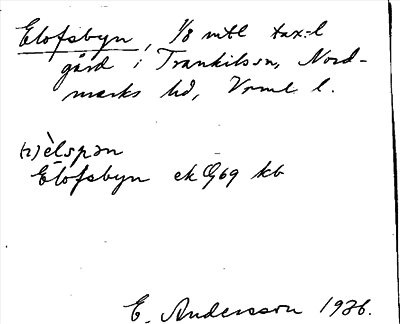 Elofsbyn, 1/8 mtl tax:l
gård i Trankilssn, Nord-
marks hd, Vrml l.
(2) èlspən
Elofsbyn ek G69 kb
E. Andersson 1926.